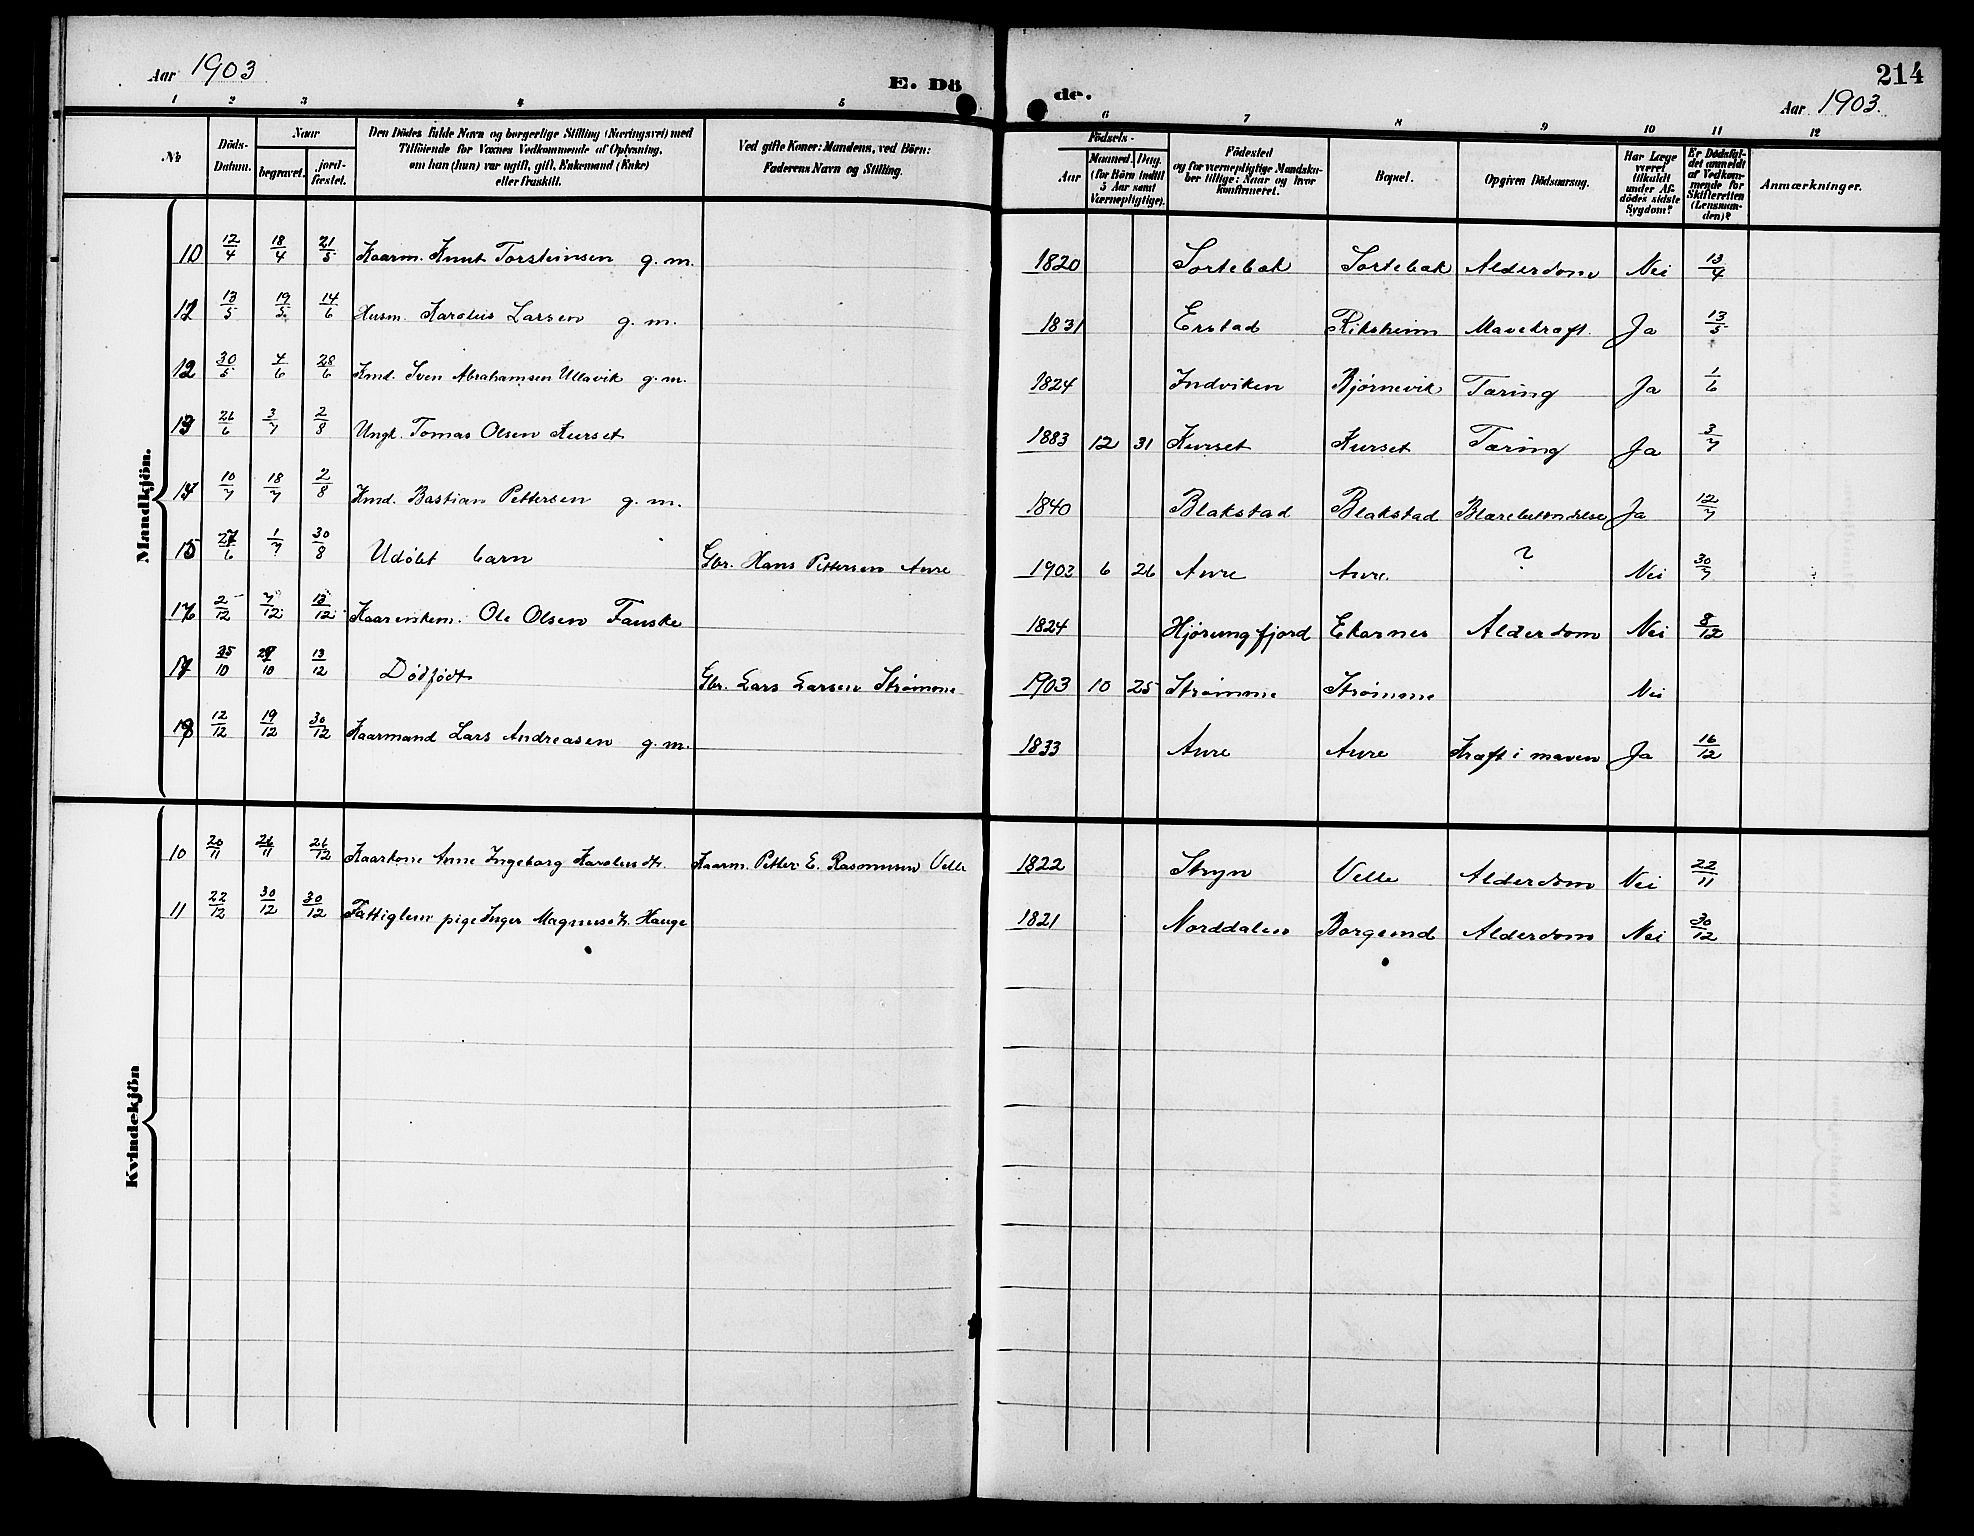 Aar 1903
E. Dö
de.
214
Aar 1903.
1 2 3 4 5 6 7 8 9 10 11 12
No
Döds-Datum.
Naar
begravet.
jord-fæstet.
Den Dödes fulde Navn og borgerlige Stilling (Næringsvei) med
Tilföiende for Voxnes Vedkommende af Oplysning,
om han (hun) var ugift, gift, Enkemand (Enke)
eller fraskilt.
Ved gifte Koner: Mandens, ved Börn:
Faderens Navn og Stilling.
Födsels-
Aar
Maaned. Dag.
(for Börn indtil
5 Aar samt
Værnepligtige).
Födested
og for værnepligtige Mandskaber tillige: Naar og hvor
konfirmeret.
Bopæl.
Opgiven Dödsaarsag.
Har Læge
været
tilkaldt
under Afdödes sidste
Sygdom?
Er Dödsfaldet anmeldt
af Vedkommende for
Skifteretten
(Lensmanden)?
Anmærkninger.
Mandkjön.
10 12/4 18/4 21/5 Kaarm. Knut Torsteinsen g. m. 1820 Sortebak Sortebak Alderdom Nei 13/4
11 13/5 19/5 14/6 Husm. Karolus Larsen g. m. 1831 Erstad Riksheim Mavekræft Ja 13/5
12 30/5 4/6 28/6 Gmd. Sven Abrahamsen Ullavik g. m. 1824 Indviken Bjørnevik Tæring Ja 1/6
13 26/6 3/7 2/8 Ungk. Tomas Olsen Kurset 1883 12 31 Kurset Kurset Tæring Ja 3/7
14 10/7 18/7 2/8 Gmd. Bastian Pettersen g. m. 1840 Blakstad Blakstad Blærebetændelse Ja 12/7
15 27/6 1/7 30/8 Udøbt barn Gbr. Hans Pettersen Aure 1903 6 26 Aure Aure. ? Nei 30/7
16 2/12 7/12 13/12 Kaarenkem. Ole Olsen Fauske 1824 Hjørungfjord Ekornes Alderdom Nei 8/12
17 25/10 29/10 13/12 Dødfødt Gbr. Lars Larsen Strømme 1903 10 25 Strømme Strømme Nei
18 12/12 19/12 30/12 Kaarmand Lars Andreasen g. m. 1833 Aure Aure Kræft i maven Ja 16/12
Kvindekjön
10 20/11 26/11 26/12 Kaarkone Anne Ingeborg Karolusdtr. Kaarm. Petter E. Rasmussen Velle 1822 Stryn Velle Alderdom Nei 22/11
11 22/12 30/12 30/12 Fattiglem pige Inger Magnusdtr. Hauge 1821 Norddalen Borgund Alderdom Nei 30/12